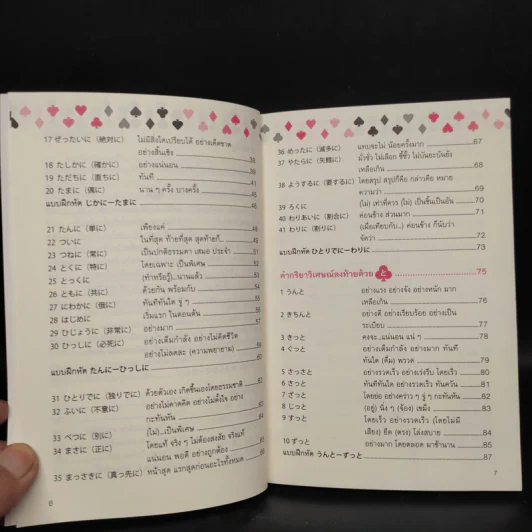 17 ぜったいに (絶対に) ไม่มีสิ่งใดเปรียบได้ อย่างเด็ดขาด
อย่างสิ้นเชิง 38
18 たしかに (確かに) อย่างแน่นอน
19 ただちに (直ちに) ทันที
20 たまに (偶に) นาน ๆ ครั้ง บางครั้ง
แบบฝึกหัด じかにーたまに
21 たんに (単に) เพียงแค่
22 ついに ในที่สุด ท้ายที่สุด สุดท้ายก็...
23 つねに (常に) เป็นปกติธรรมดา เสมอ ประจำ
24 とくに (特に) โดยเฉพาะ เป็นพิเศษ
25 とっくに (ทำหรือรู้)...นานแล้ว
26 ともに (共に) ด้วยกัน พร้อมกับ
27 にわかに (俄に) ทันทีทันใด จู่ ๆ
28 はじめに เริ่มแรก ในตอนต้น
29 ひじょうに (非常に) อย่างมาก 57
30 ひっしに (必死に) อย่างเต็มกำลัง อย่างไม่คิดชีวิต
อย่างไม่ลดละ (ความพยายาม)
แบบฝึกหัด たんにーひっしに 60
31 ひとりでに (独りでに) ด้วยตัวเอง เกิดขึ้นเองโดยธรรมชาติ 62
32 ふいに (不意に) อย่างไม่คาดคิด อย่างไม่ตั้งใจ อย่าง
กะทันหัน
33 べつに (別に) (ไม่)...เป็นพิเศษ
34 まさに (正に) โดยแท้ จริง ๆ ไม่ต้องสงสัย จริงแท้
แน่นอน พอดี อย่างถูกต้อง
35 まっさきに (真っ先に) หน้าสุด แรกสุดก่อนอะไรทั้งหมด
6
36 めったに (滅多に) แทบจะไม่ น้อยครั้งมาก 67
37 やたらに (矢鱈に) มั่วซั่ว ไม่เลือก ซี้ซั้ว ไม่บันยะบันยัง
เหลือเกิน 68
38 ようするに (要するに) โดยสรุป สรุปก็คือ กล่าวคือ หมาย
ความว่า 69
39 ろくに (ไม่) เท่าที่ควร (ไม่) เป็นชิ้นเป็นอัน 70
40 わりあいに (割合に) ค่อนข้าง ส่วนมาก 71
41 わりに (割りに) (เมื่อเทียบกับ...) ค่อนข้าง ก็นับว่า
จัดว่า 72
แบบฝึกหัด ひとりでにーわりに 73
คำกริยาวิเศษณ์ลงท้ายด้วย と 75
1 うんと อย่างแรง อย่างจัง อย่างหนัก มาก
เหลือเกิน 76
2 きちんと อย่างดี อย่างเรียบร้อย อย่างเป็น
ระเบียบ 77
3 きっと คงจะ..แน่นอน แน่ ๆ 78
4 ぐっと อย่างเต็มกำลัง อย่างมาก ทันที
ทันใด (ดื่ม) พรวด 79
5 さっさと อย่างรวดเร็ว อย่างเร่งรีบ โดยเร็ว 80
6 さっと ทันทีทันใด อย่างรวดเร็ว ทันควัน 81
7 ざっと โดยย่อ อย่างคร่าว ๆ จู่ ๆ กะทันหัน 82
8 じっと (อยู่) นิ่ง ๆ (จ้อง) เขม็ง 83
9 すっと โดยเร็ว อย่างรวดเร็ว (โดยไม่มี
เสียง) ยืด (ตรง) โล่งสบาย 84
10 ずっと อย่างมาก โดยตลอด มาช้านาน 85
แบบฝึกหัด うんとーずっと 87
7